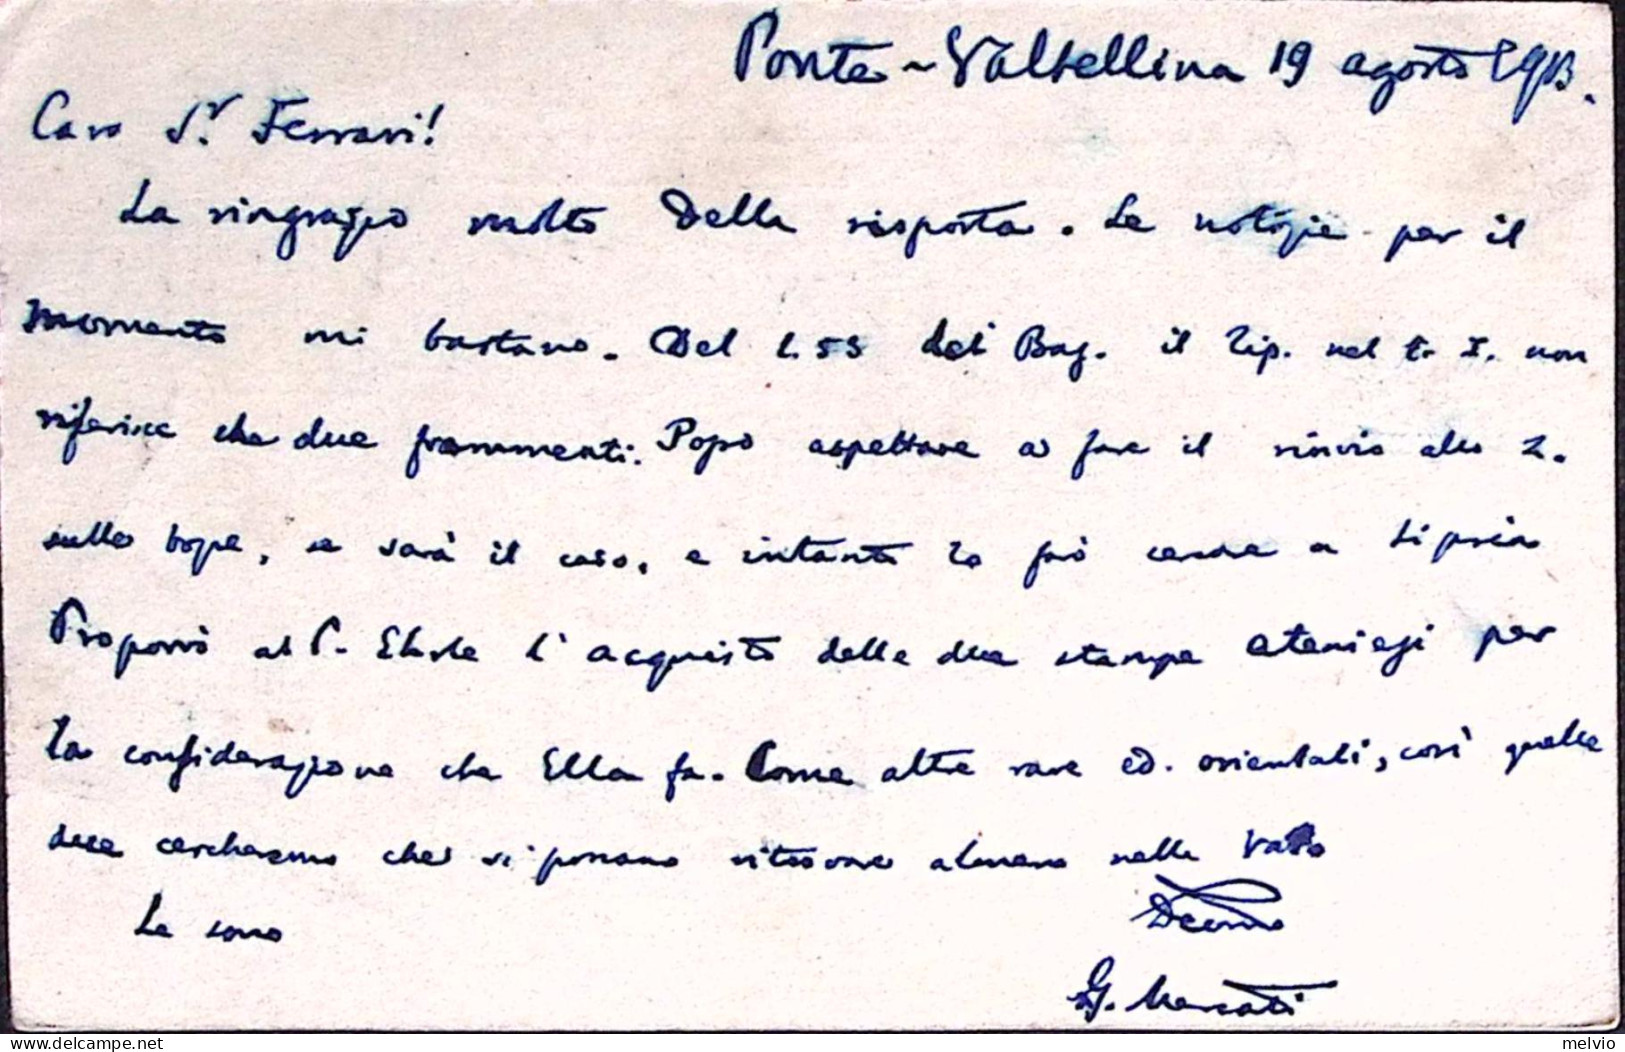 Ponte-Valtellina 19 agosto 1913.
Caro S.r Ferrari!
La ringrazio molto della risposta. Le notizie per il
momento mi bastano. Del l. 55 dei Bas. il Zip. nel t. I. non
riferisce che due frammenti. Posso aspettare a fare il rinvio allo Z.
sulle bozze, se sarà il caso, e intanto lo farò cercare a Lipsia
Proporrò al P. Ehrle l'acquisto delle due stampe ateniesi per
la considerazione che Ella fa. Come altre rare ed. orientali, così quelle
due cercheremo che si possano ritrovare almeno nella Vat.
Le sono
Devmo
G. Mercati
melvio